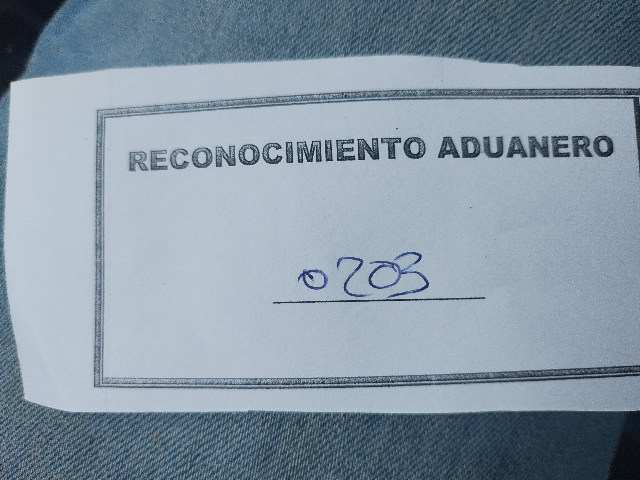 RECONOCIMIENTO ADUANERO
0203